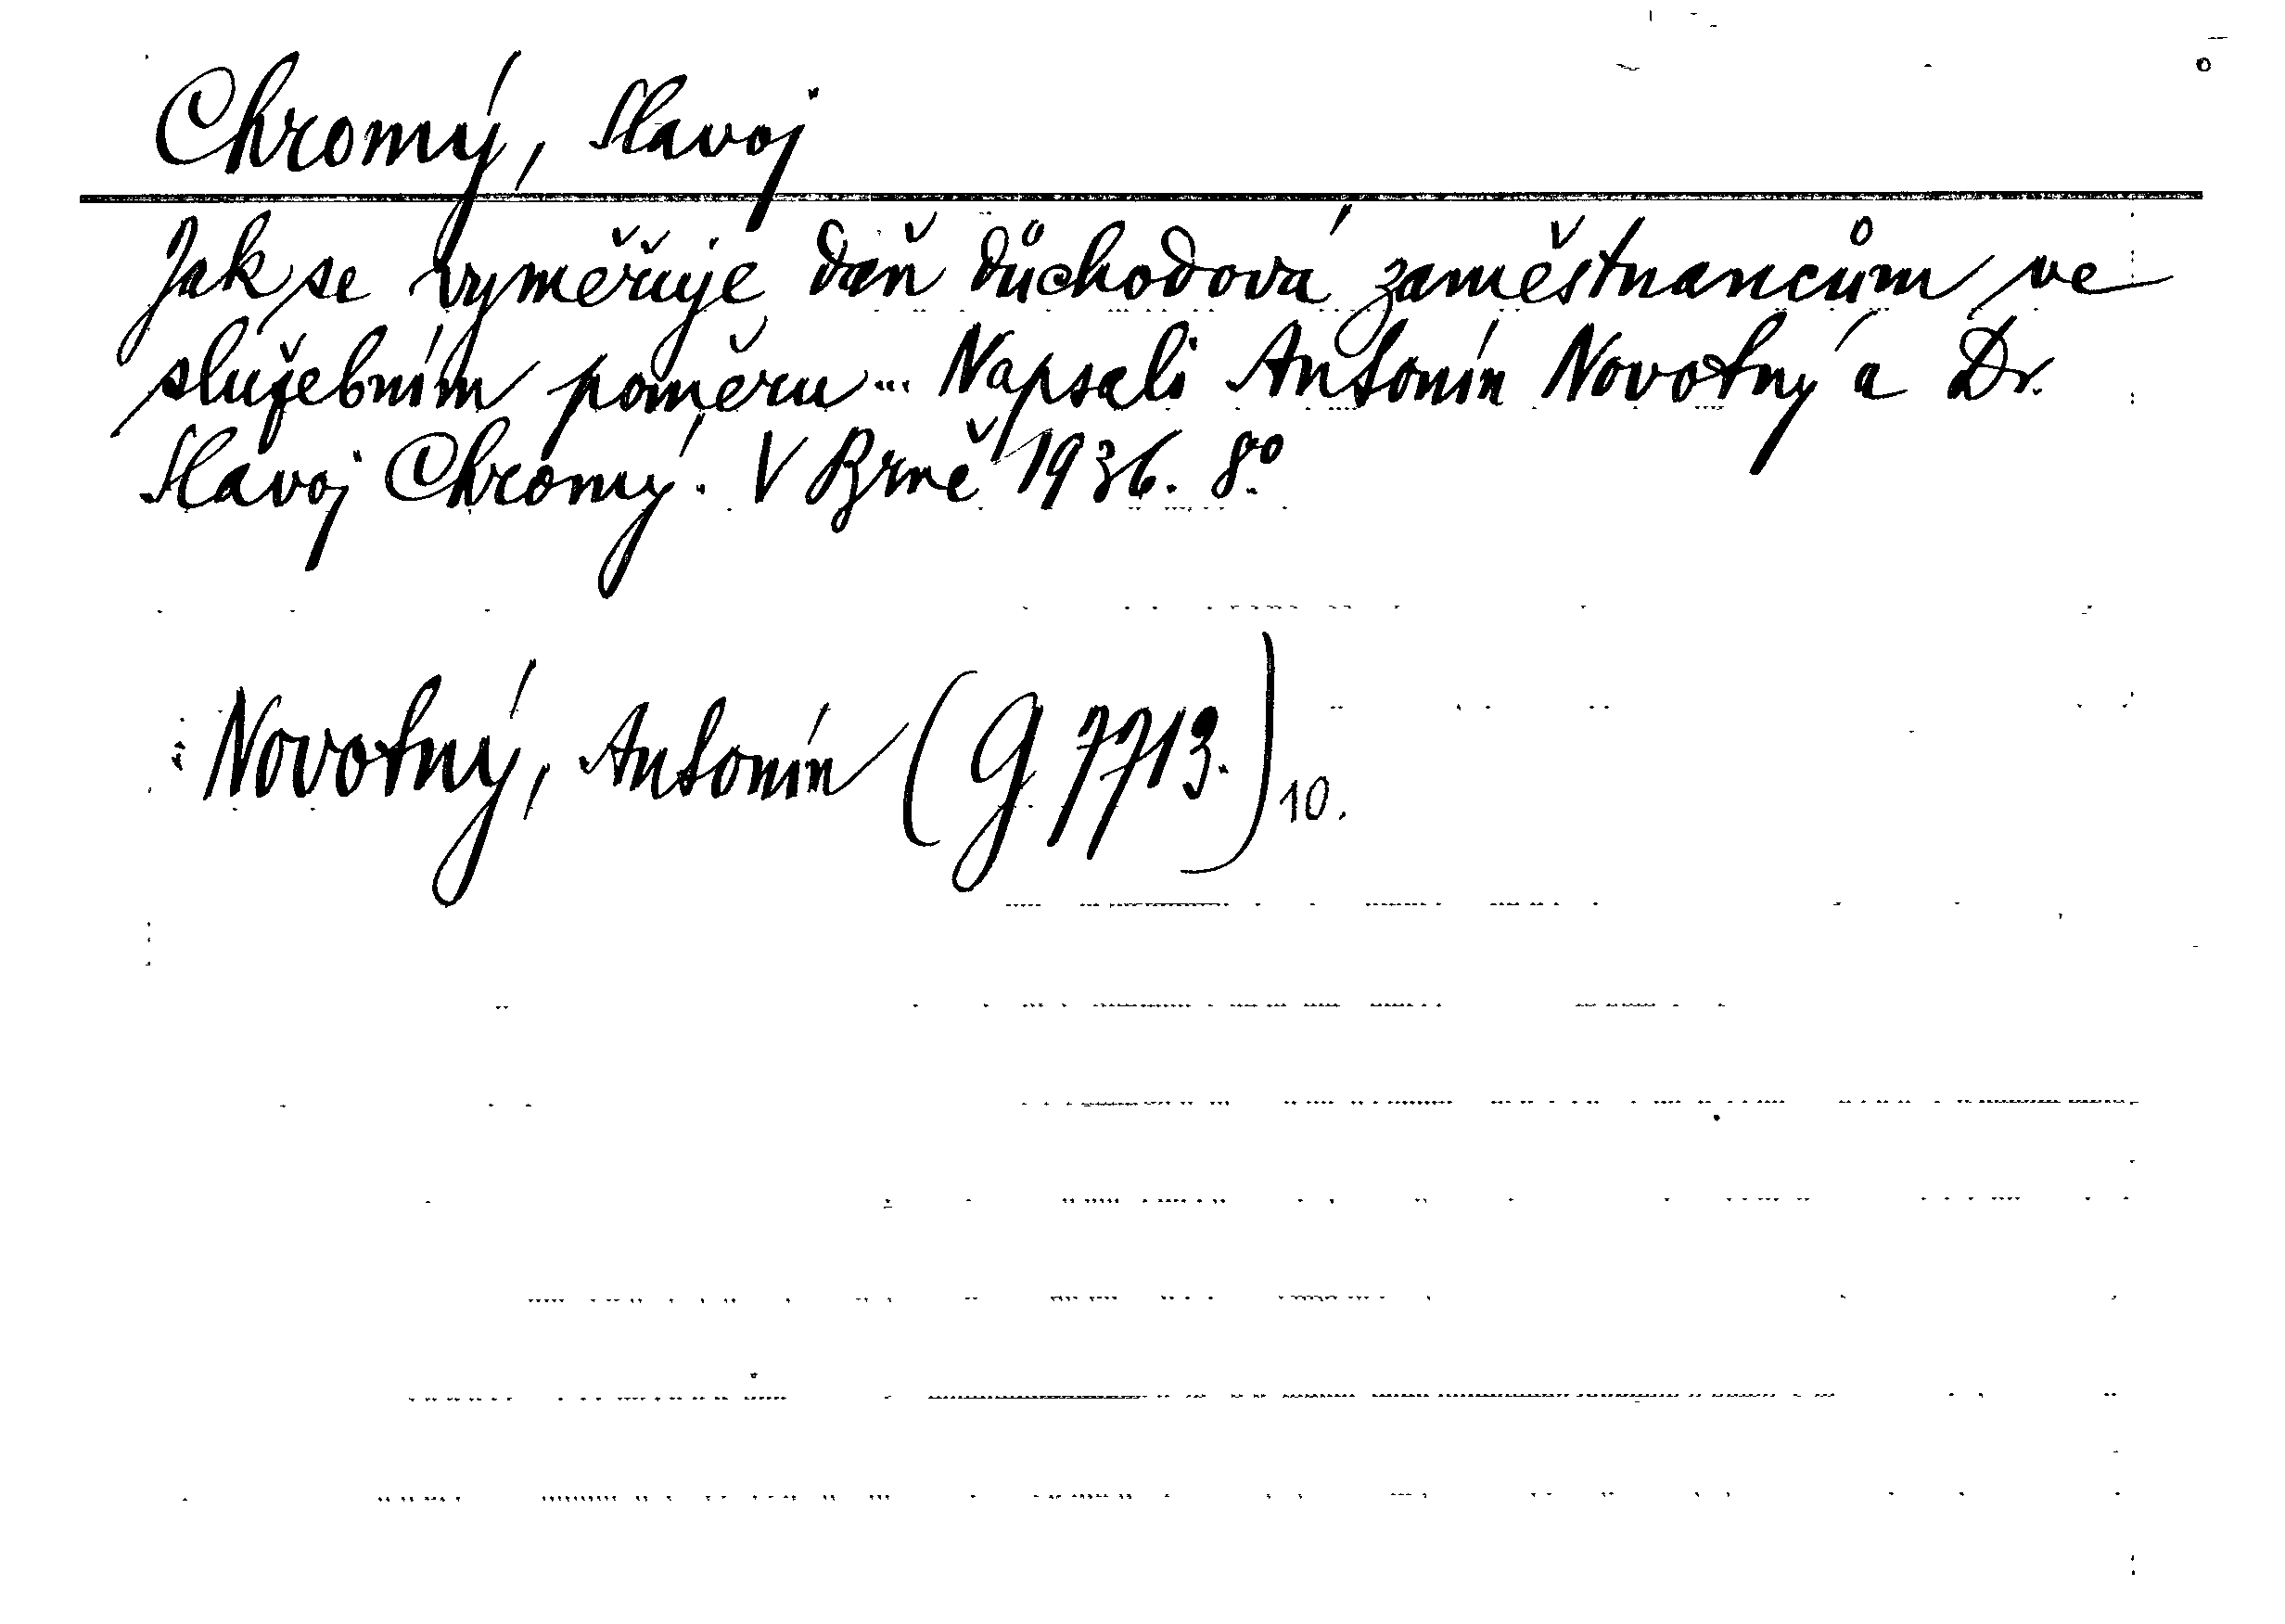 Chromý, Slavoj
Jak se vyměřuje daň důchodová zaměstnancům ve
služebním poměru... Napsali Antonín Novotný a Dr.
Slavoj Chromý. V Brně 1936. 8.°
Novotný, Antonín (G 7713.) 10.